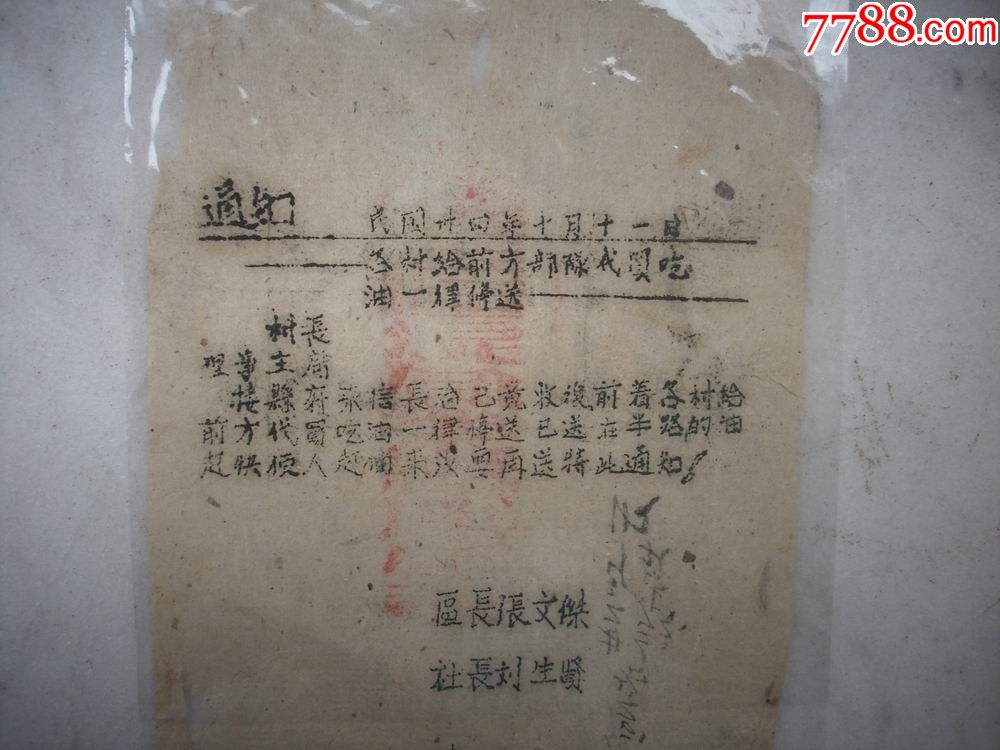 7788.com
通知
民国卅四年十月十一日
各村给前方部隊代買吃
油一律停送
村長
理事主席
接縣府來信長治已竟收復前着各村给
前方代買吃油一律停送已送在半路的油
趕快使人趕回来沒要再送特此通知!
區長張文傑
社長刘生賢